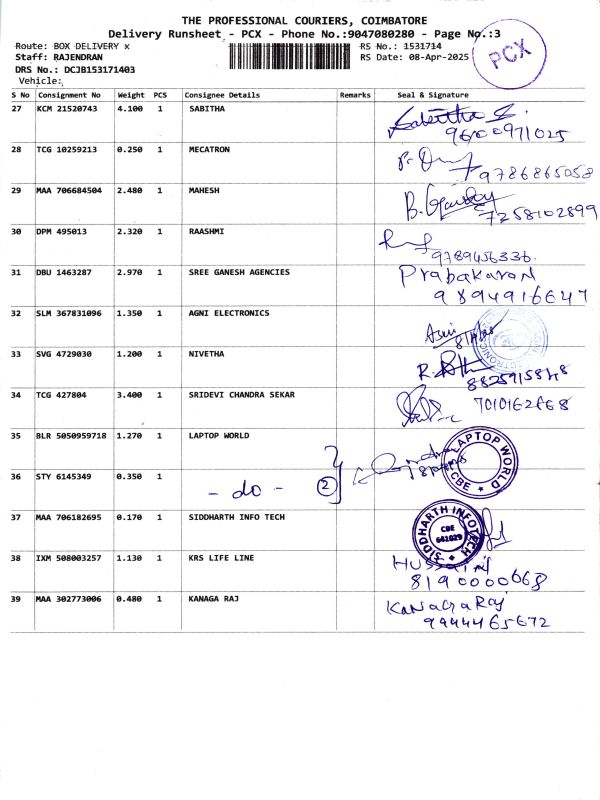 THE PROFESSIONAL COURIERS, COIMBATORE
Delivery Runsheet - PCX - Phone No.:9047080280 - Page No.:3
Route: BOX DELIVERY x RS No.: 1531714
Staff: RAJENDRAN RS Date: 08-Apr-2025
DRS No.: DCJB153171403
Vehicle:
PCX
S No Consignment No Weight PCS Consignee Details Remarks Seal & Signature
27 KCM 21520743 4.100 1 SABITHA Sabitha
9600971025
28 TCG 10259213 0.250 1 MECATRON
9786865058
29 MAA 706684504 2.480 1 MAHESH
7258102899
30 DPM 495013 2.320 1 RAASHMI
9789456336
31 DBU 1463287 2.970 1 SREE GANESH AGENCIES Prabakaran
9894916647
32 SLM 367831096 1.350 1 AGNI ELECTRONICS
33 SVG 4729030 1.200 1 NIVETHA
34 TCG 427804 3.400 1 SRIDEVI CHANDRA SEKAR
35 BLR 5050959718 1.270 1 LAPTOP WORLD LAPTOP WORLD
CBE
36 STY 6145349 0.350 1 - do - 2
37 MAA 706182695 0.170 1 SIDDHARTH INFO TECH SIDDHARTH INFOTECH
CBE
641029
38 IXM 508003257 1.130 1 KRS LIFE LINE
8190000668
39 MAA 302773006 0.480 1 KANAGA RAJ Kanagaraj
9944465672